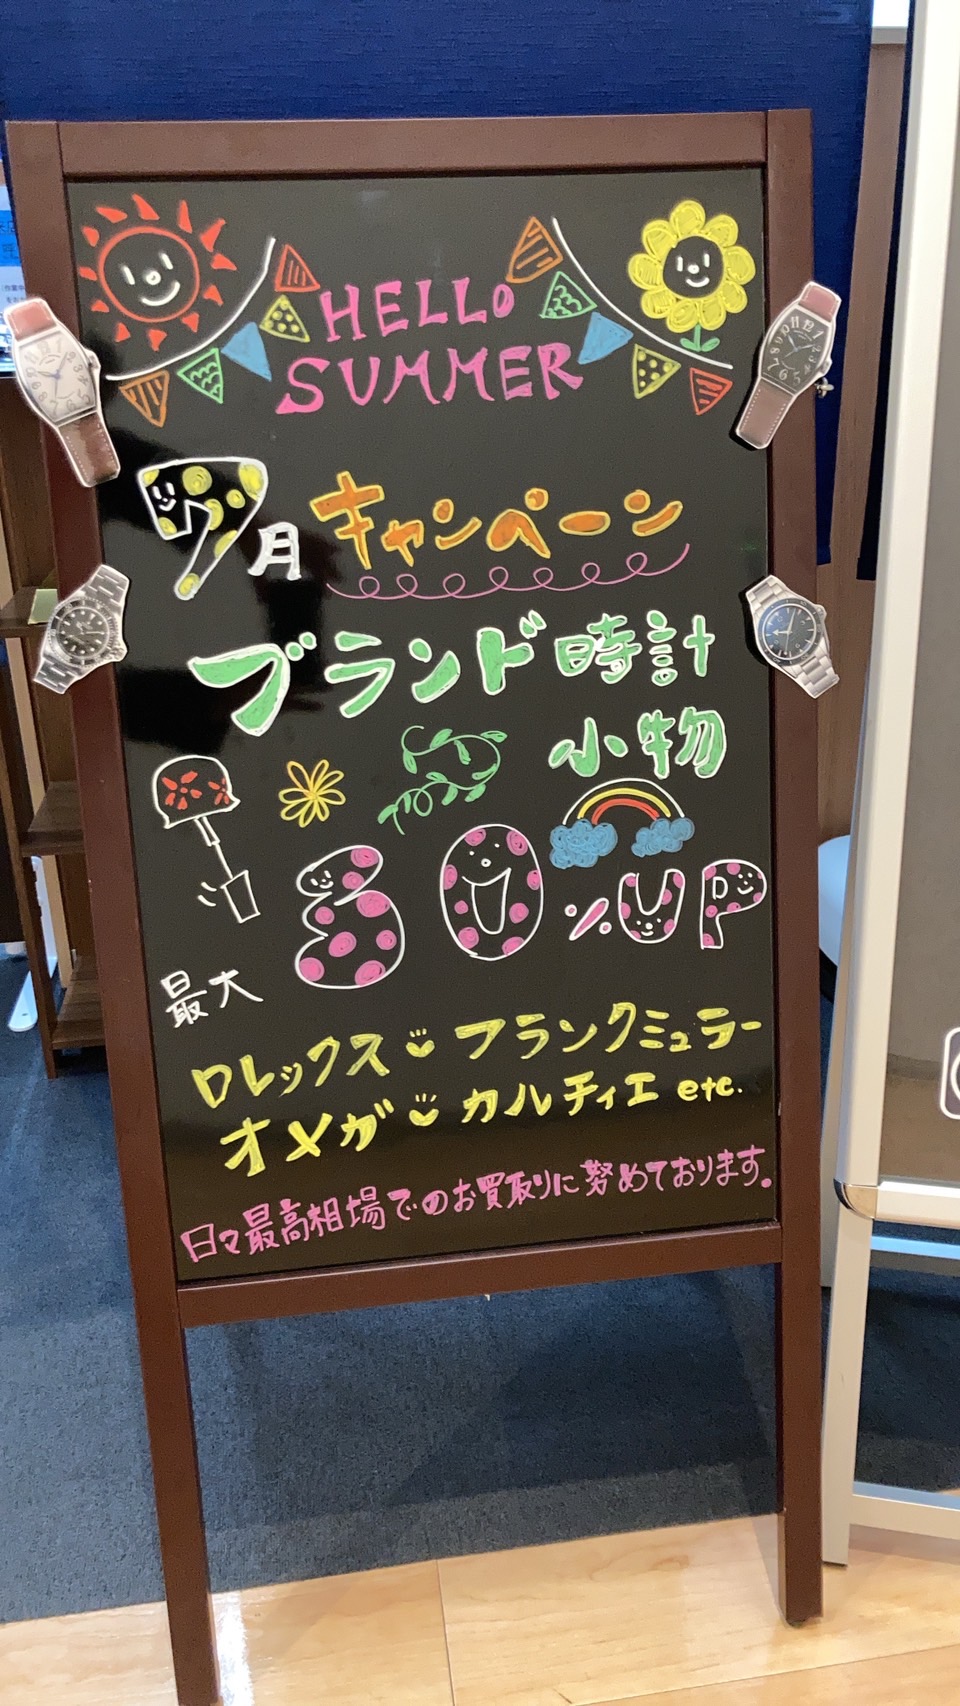 HELLO
SUMMER
7月 キャンペーン
ブランド時計
小物
最大 30%UP
ロレックス フランクミュラー
オメガ カルティエ etc.
日々最高相場でのお買取りに努めております。